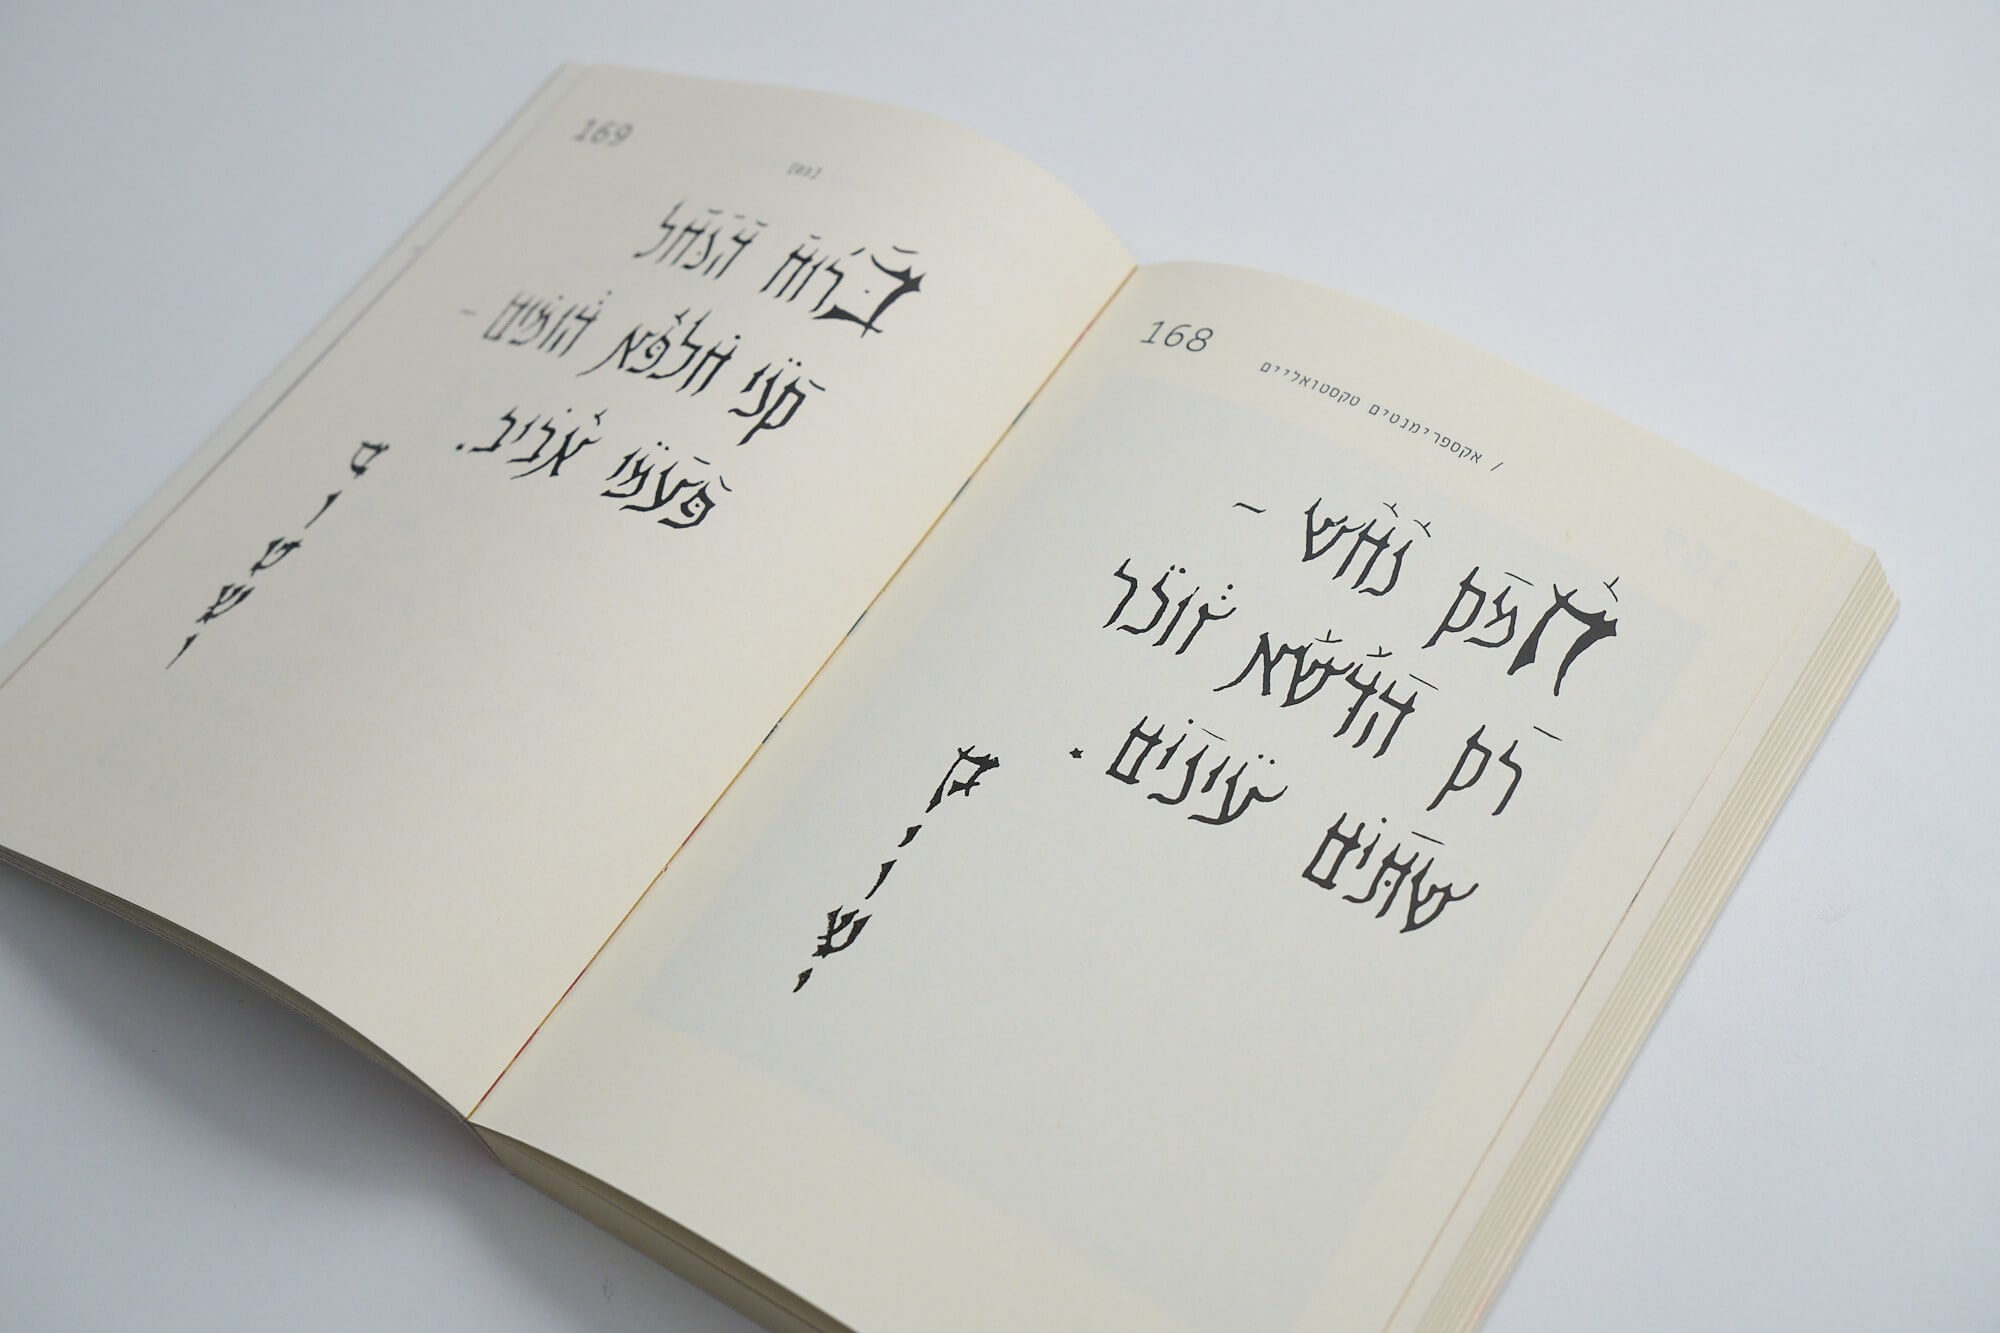 168
/ אקספרימנטים טקסטואליים
חמק נחש –
רק הדשא זוכר
שתים עינים .
קיושי
169
ברוח הנחל
קני חלפא הומים –
פעמי אביב .